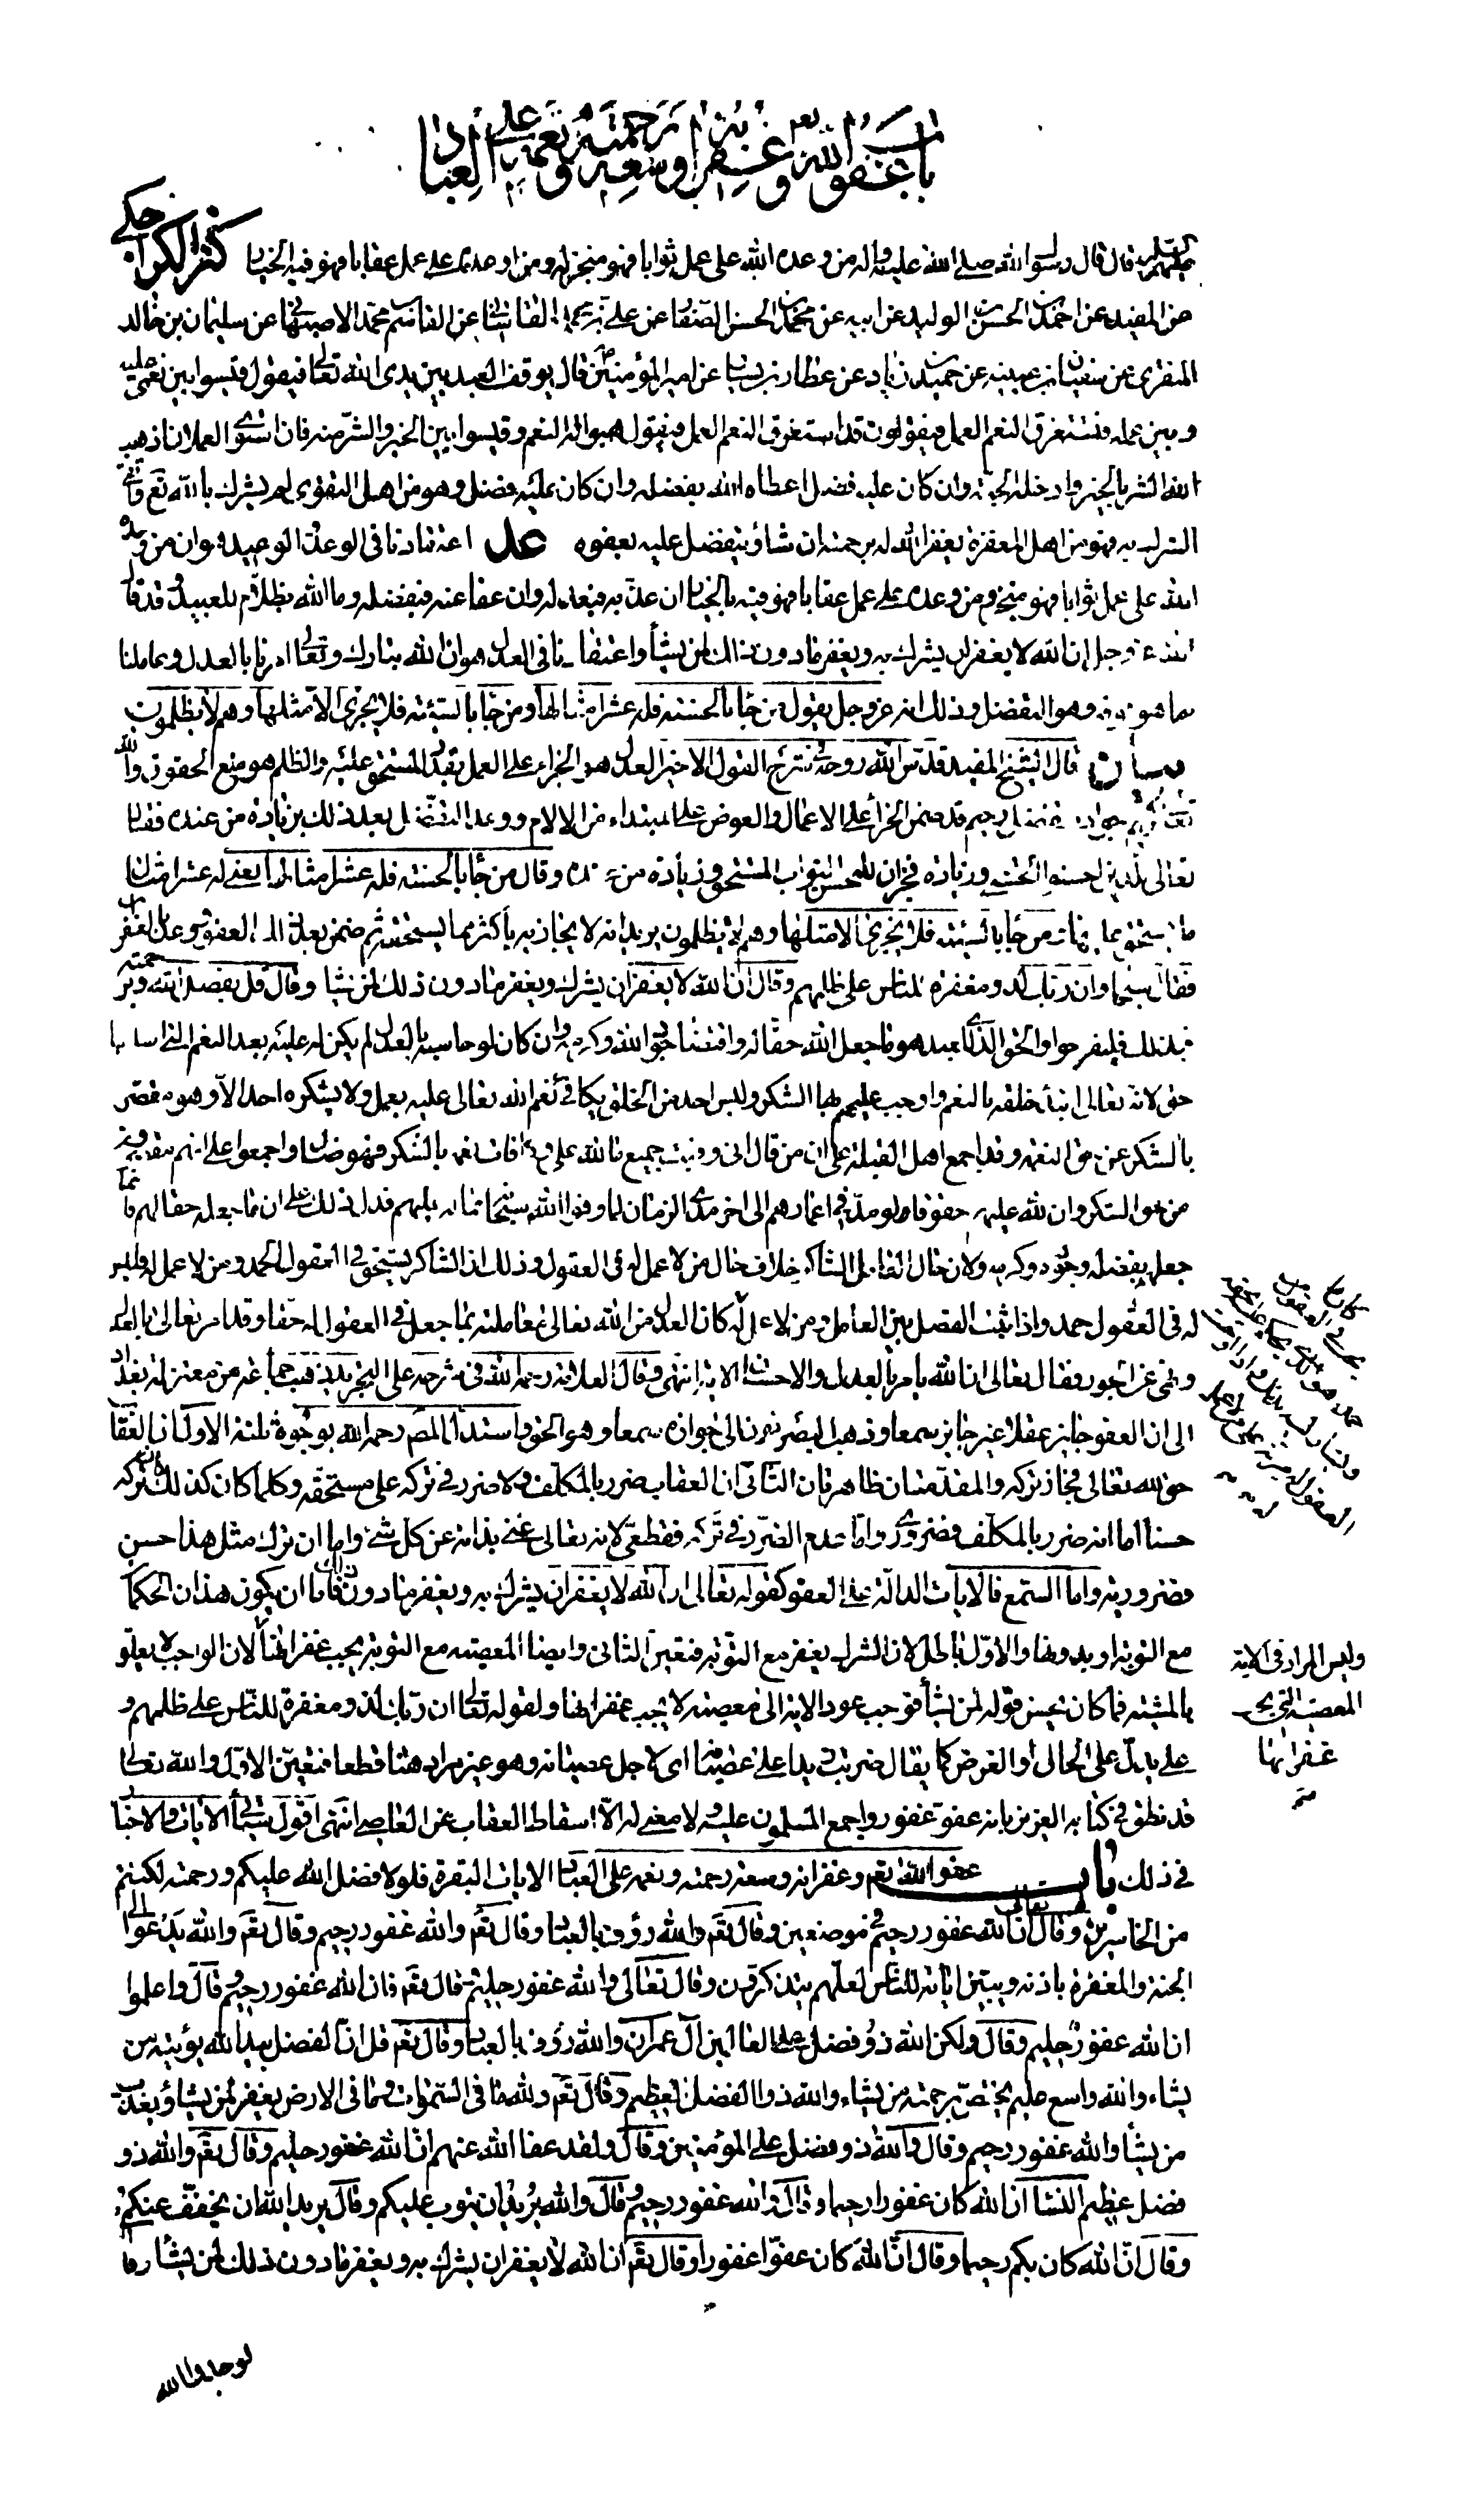 باب عفو الله تعالى وغفرانه وسعة رحمته ونعمه على العباد
عليهم السلم قال قال رسول الله صلى الله عليه واله من وعده الله على عمل ثوابا فهو منجز له ومن اوعده على عمل عقابا فهو فيه بالخيار كنز الكراجكي
عن المفيد عن احمد بن الحسن بن الوليد عن ابيه عن محمد بن الحسن الصفار عن علي بن محمد القاشاني عن القاسم بن محمد الاصبهاني عن سليمان بن خالد
المنقري عن سفيان بن عيينه عن حميد بن زياد عن عطا بن يسار عن امير المؤمنين قال يوقف العبد بين يدي الله تعالى فيقول قيسوا بين نعمي عليه
وبين عمله فتستغرق النعم العمل فيقولون قد استغرق النعم العمل فيقول هبوا له النعم وقيسوا بين الخير والشر منه فان استوى العملان اذهب
الله الشر بالخير وادخله الجنة وان كان عليه فضل اعطاه الله بفضله وان كان عليه فضل وهو من اهل التقوى لم يشرك بالله تع واتقى
الشرك به فهو من اهل المغفرة يغفر الله له برحمته ان شاء ويتفضل عليه بعفوه عد اعتقادنا في الوعد والوعيد هو ان من وعده
الله على عمل ثوابا فهو منجزه ومن وعده على عمل عقابا فهو فيه بالخيار ان عذبه فبعدله وان عفا عنه فبفضله وما الله بظلام للعبيد وقد قال
الله عز وجل ان الله لا يغفر ان يشرك به ويغفر ما دون ذلك لمن يشأ واعتقادنا في العدل هو ان الله تبارك وتعالى امرنا بالعدل وعاملنا
بما هو فوقه وهو التفضل وذلك انه عز وجل يقول من جاء بالحسنة فله عشر امثالها ومن جاء بالسيئة فلا يجزى الا مثلها وهم لا يظلمون
بيان قال الشيخ المفيد قدس الله روحه في شرح القول الاخير العدل هو الجزاء على العمل بقدر المستحق عليه والظلم هو منع الحقوق والله
تعالى كريم جواد متفضل رحيم قد ضمن الجزأ على الاعمال والعوض على المبتداء من الالام ووعد التفضل بعد ذلك بزيادة من عنده فقال
تعالى للذين احسنوا الحسنى وزيادة فخبر ان للمحسن الثواب المستحق وزيادة من عنده وقال من جاء بالحسنة فله عشر امثالها يعني له عشر امثال
ما يستحق عليها ومن جاء بالسيئة فلا يجزى الا مثلها وهم لا يظلمون يريد انه لا يجازيه بأكثر مما يستحقه ثم ضمن بعد ذلك العفو ووعد بالغفران
فقال سبحانه وان ربك لذو مغفرة للناس على ظلمهم وقال ان الله لا يغفر ان يشرك به ويغفر ما دون ذلك لمن يشاء وقال قل بفضل الله وبرحمته
فبذلك فليفرحوا والحق الذي للعبد هو ما جعل الله حقا له واقتضاه جود الله وكرمه وان كان لو حاسبه بالعدل لم يكن له عليه بعد النعم التي اسلفها
حق لانه تعالى ابتدأ خلقه بالنعم واوجب عليهم بها الشكر وليس احد من الخلق يكافي نعم الله تعالى عليه بعمل ولا يشكره احد الا وهو مقصر
بالشكر عن حق النعمة وقد اجمع اهل القبلة على ان من قال اني وفيت جميع ما لله علي وكافات نعمه بالشكر فهو ضال واجمعوا على انهم مقصرون
من حق الشكر وان لله عليهم حقوقا لو مد في اعمارهم الى اخر مدى الزمان لما وفوا الله سبحانه بما له عليهم فدل ذلك على ان ما جعله حقا لهم فانما
جعله بفضله وجوده وكرمه ولان حال العامل الشاكر خلاف حال من لا عمل له في العقول وذلك ان الشاكر يستحق في العقول الحمد ومن لا عمل له فليس
له في العقول حمد واذا ثبت الفصل بين العامل ومن لا عمل له كان العدل من الله تعالى معاملته بما جعل في العقول له حقا وقد امر تعالى بالعدل
ونهى عن الجور فقال تعالى ان الله يأمر بالعدل والاحسان الاية انتهى وقال العلامة رحمه الله في شرحه على التجريد ذهب جماعة من معتزلة بغداد
الى ان العفو جايز عقلا غير جايز سمعا وذهب البصريون الى جوازه سمعا وهو الحق واستدل المص رحمه الله بوجوه ثلثة الاول ان العقاب
حق لله تعالى فجاز تركه والمقدمتان ظاهرتان الثاني ان العقاب ضرر بالمكلف ولا ضرر في تركه على مستحقه وكلما كان كذلك كان تركه
حسنا اما انه ضرر بالمكلف فضروري واما عدم الضرر في تركه فقطعي لانه تعالى غني بذاته عن كل شئ واما ان ترك مثل هذا حسن
فضرورية واما السمع فالايات الدالة على العفو كقوله تعالى ان الله لا يغفر ان يشرك به ويغفر ما دون ذلك فاما ان يكون هذان الحكمان
مع التوبة او بدونها والاول باطل لان الشرك يغفر مع التوبة فتعين الثاني وايضا المعصية مع التوبة يجب غفرانها لان الواجب لا يعلق
بالمشية فما كان يحسن قوله لمن يشأ فوجب عود الاية الى معصية لا يجب غفرانها ولقوله تعالى ان ربك لذو مغفرة للناس على ظلمهم و
على يدل على الحال او الغرض كما يقال ضربت زيدا على عصيانه اى لاجل عصيانه وهو غير مراد هنا قطعا فتعين الاول والله تعالى
قد نطق في كتابه العزيز بانه عفو غفور واجمع المسلمون عليه ولا معنى له الا اسقاط العقاب عن العاصي انتهى اقول سيأتي الايات والاخبار
في ذلك باب عفو الله تعالى وغفرانه وسعة رحمته ونعمه على العباد الايات البقرة فلولا فضل الله عليكم ورحمته لكنتم
من الخاسرين وقال تعالى ان الله غفور رحيم في موضعين وقال تع والله رؤف بالعباد وقال تع والله غفور رحيم وقال تع والله يدعوا الى
الجنة والمغفرة باذنه ويبين اياته للناس لعلهم يتذكرون وقال تعالى والله غفور حليم قال تع فان الله غفور رحيم وقال واعلموا
ان الله غفور حليم وقال ولكن الله ذو فضل على العالمين آل عمران والله رؤف بالعباد وقال تع قل ان الفضل بيد الله يؤتيه من
يشاء والله واسع عليم يختص برحمته من يشاء والله ذوا الفضل العظيم وقال تع ولله ما في السموات وما في الارض يغفر لمن يشاء ويعذب
من يشأ والله غفور رحيم وقال والله ذو فضل على المؤمنين وقال ولقد عفا الله عنهم ان الله غفور حليم وقال تع والله ذو
فضل عظيم النسا ان الله كان غفورا رحيما وقال والله غفور رحيم وقال والله يريد ان يتوب عليكم وقال يريد الله ان يخفف عنكم
وقال ان الله كان بكم رحيما وقال ان الله كان عفوا غفورا وقال تع ان الله لا يغفر ان يشرك به ويغفر ما دون ذلك لمن يشأ وقال
وليس المراد في الاية
المعصية التي يجب
غفرانها
لوجدوا الله